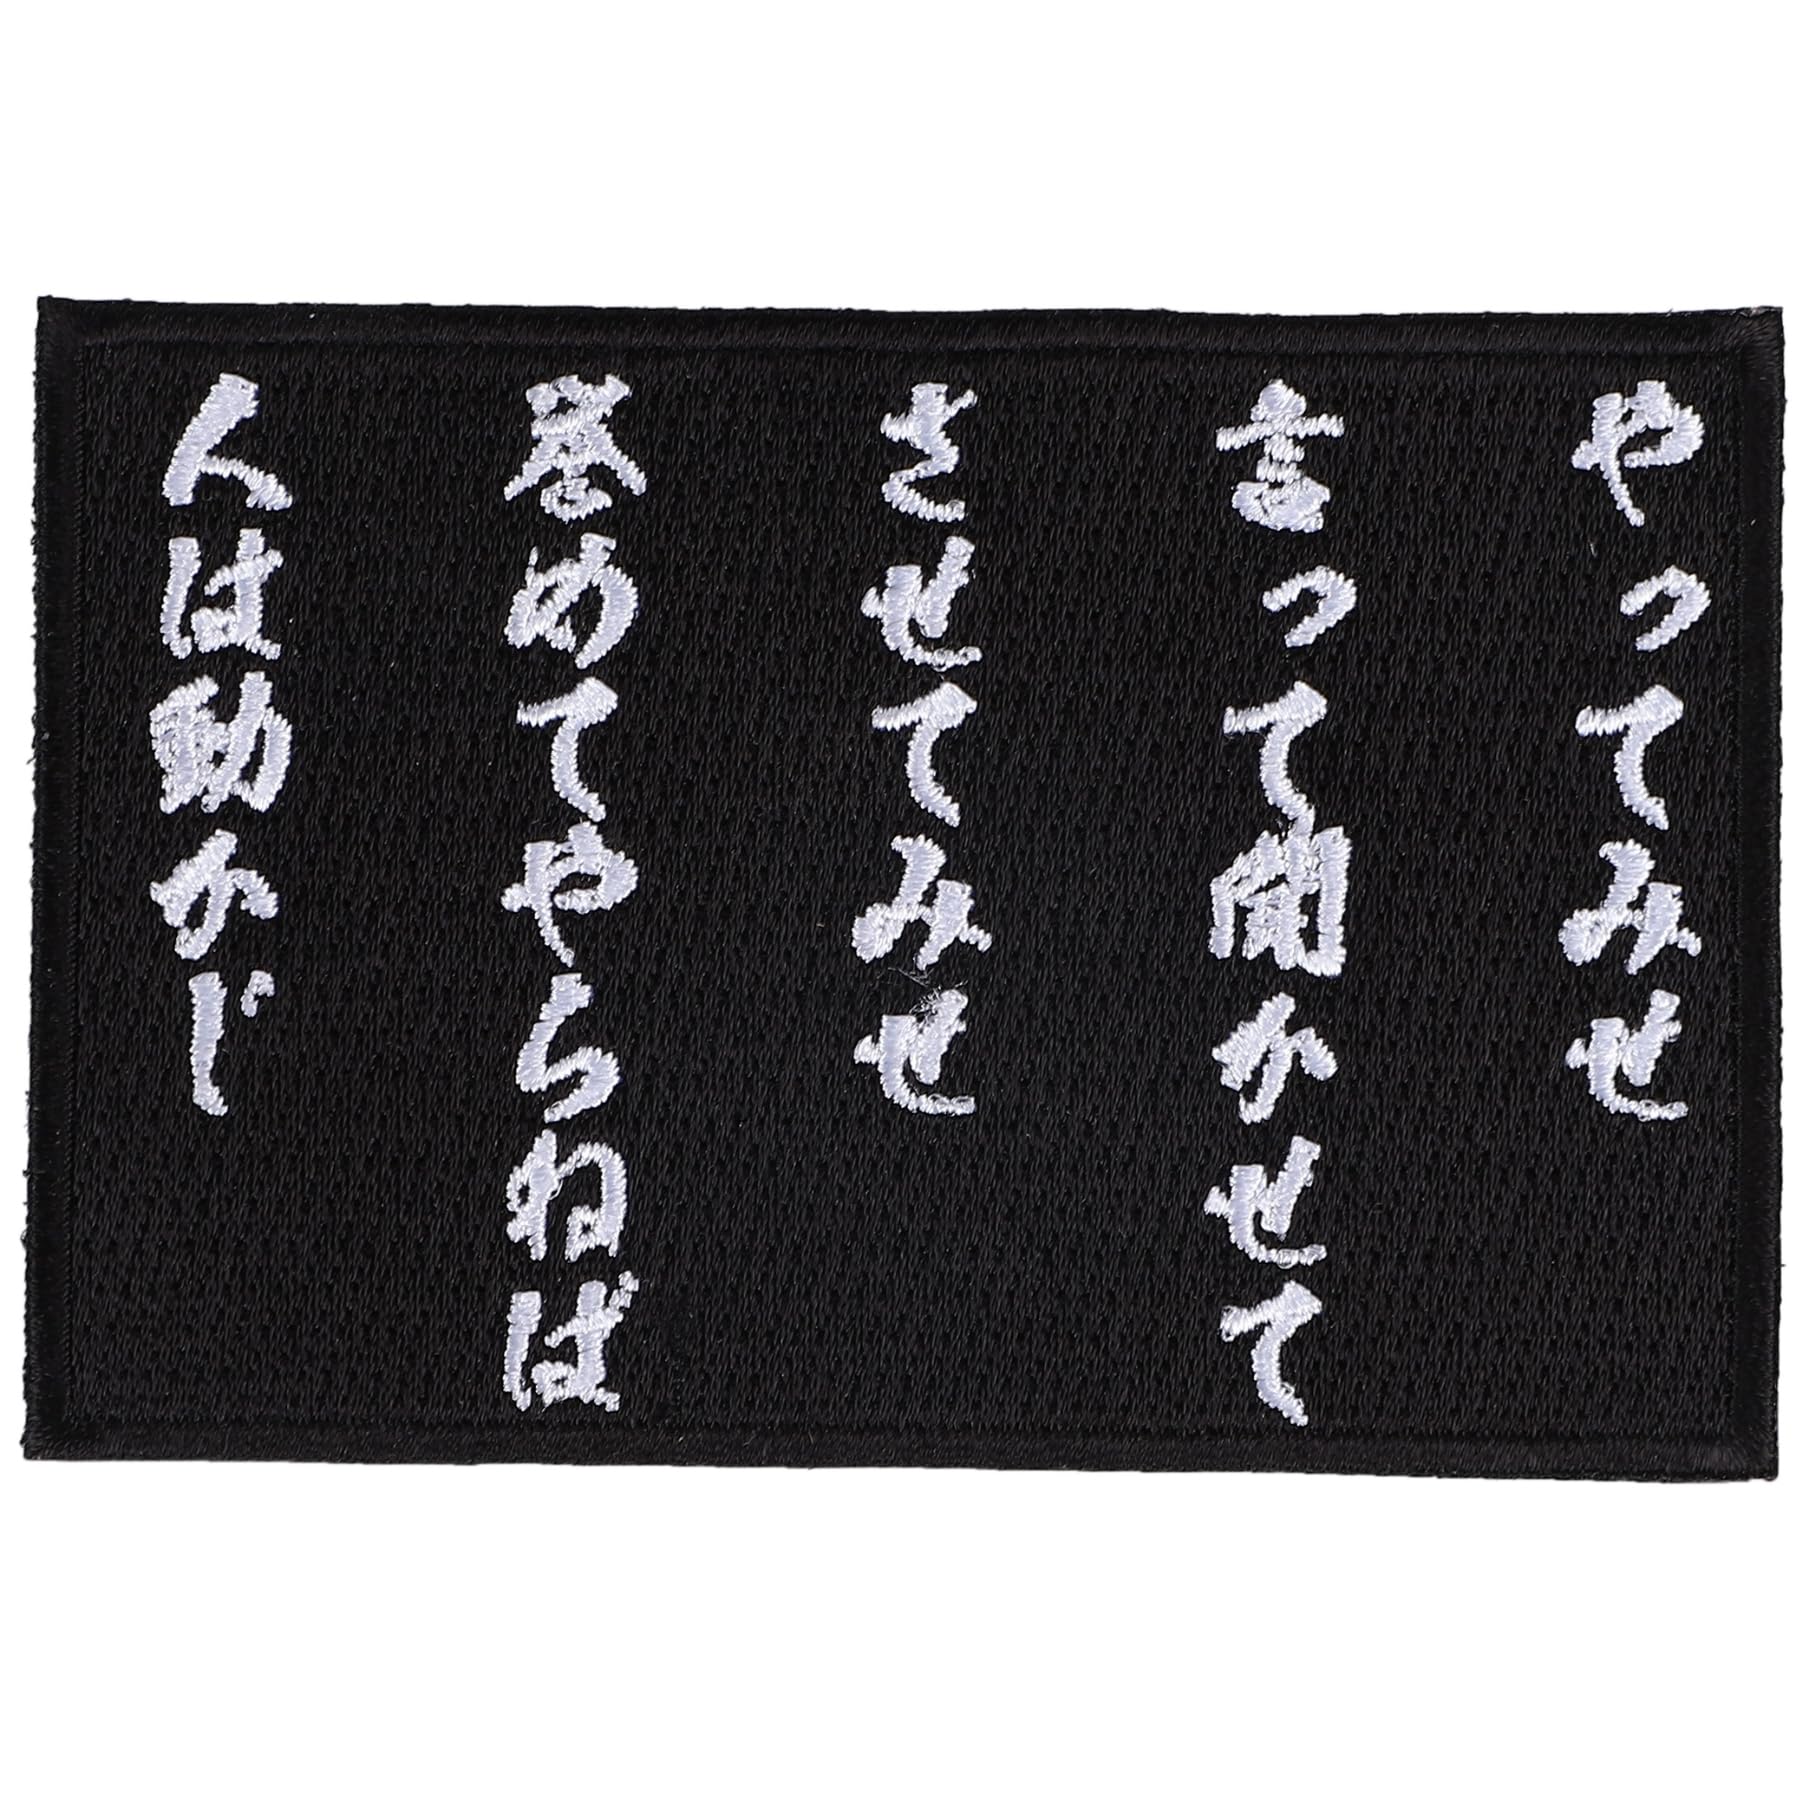 やってみせ
言って聞かせて
させてみせ
誉めてやらねば
人は動かじ